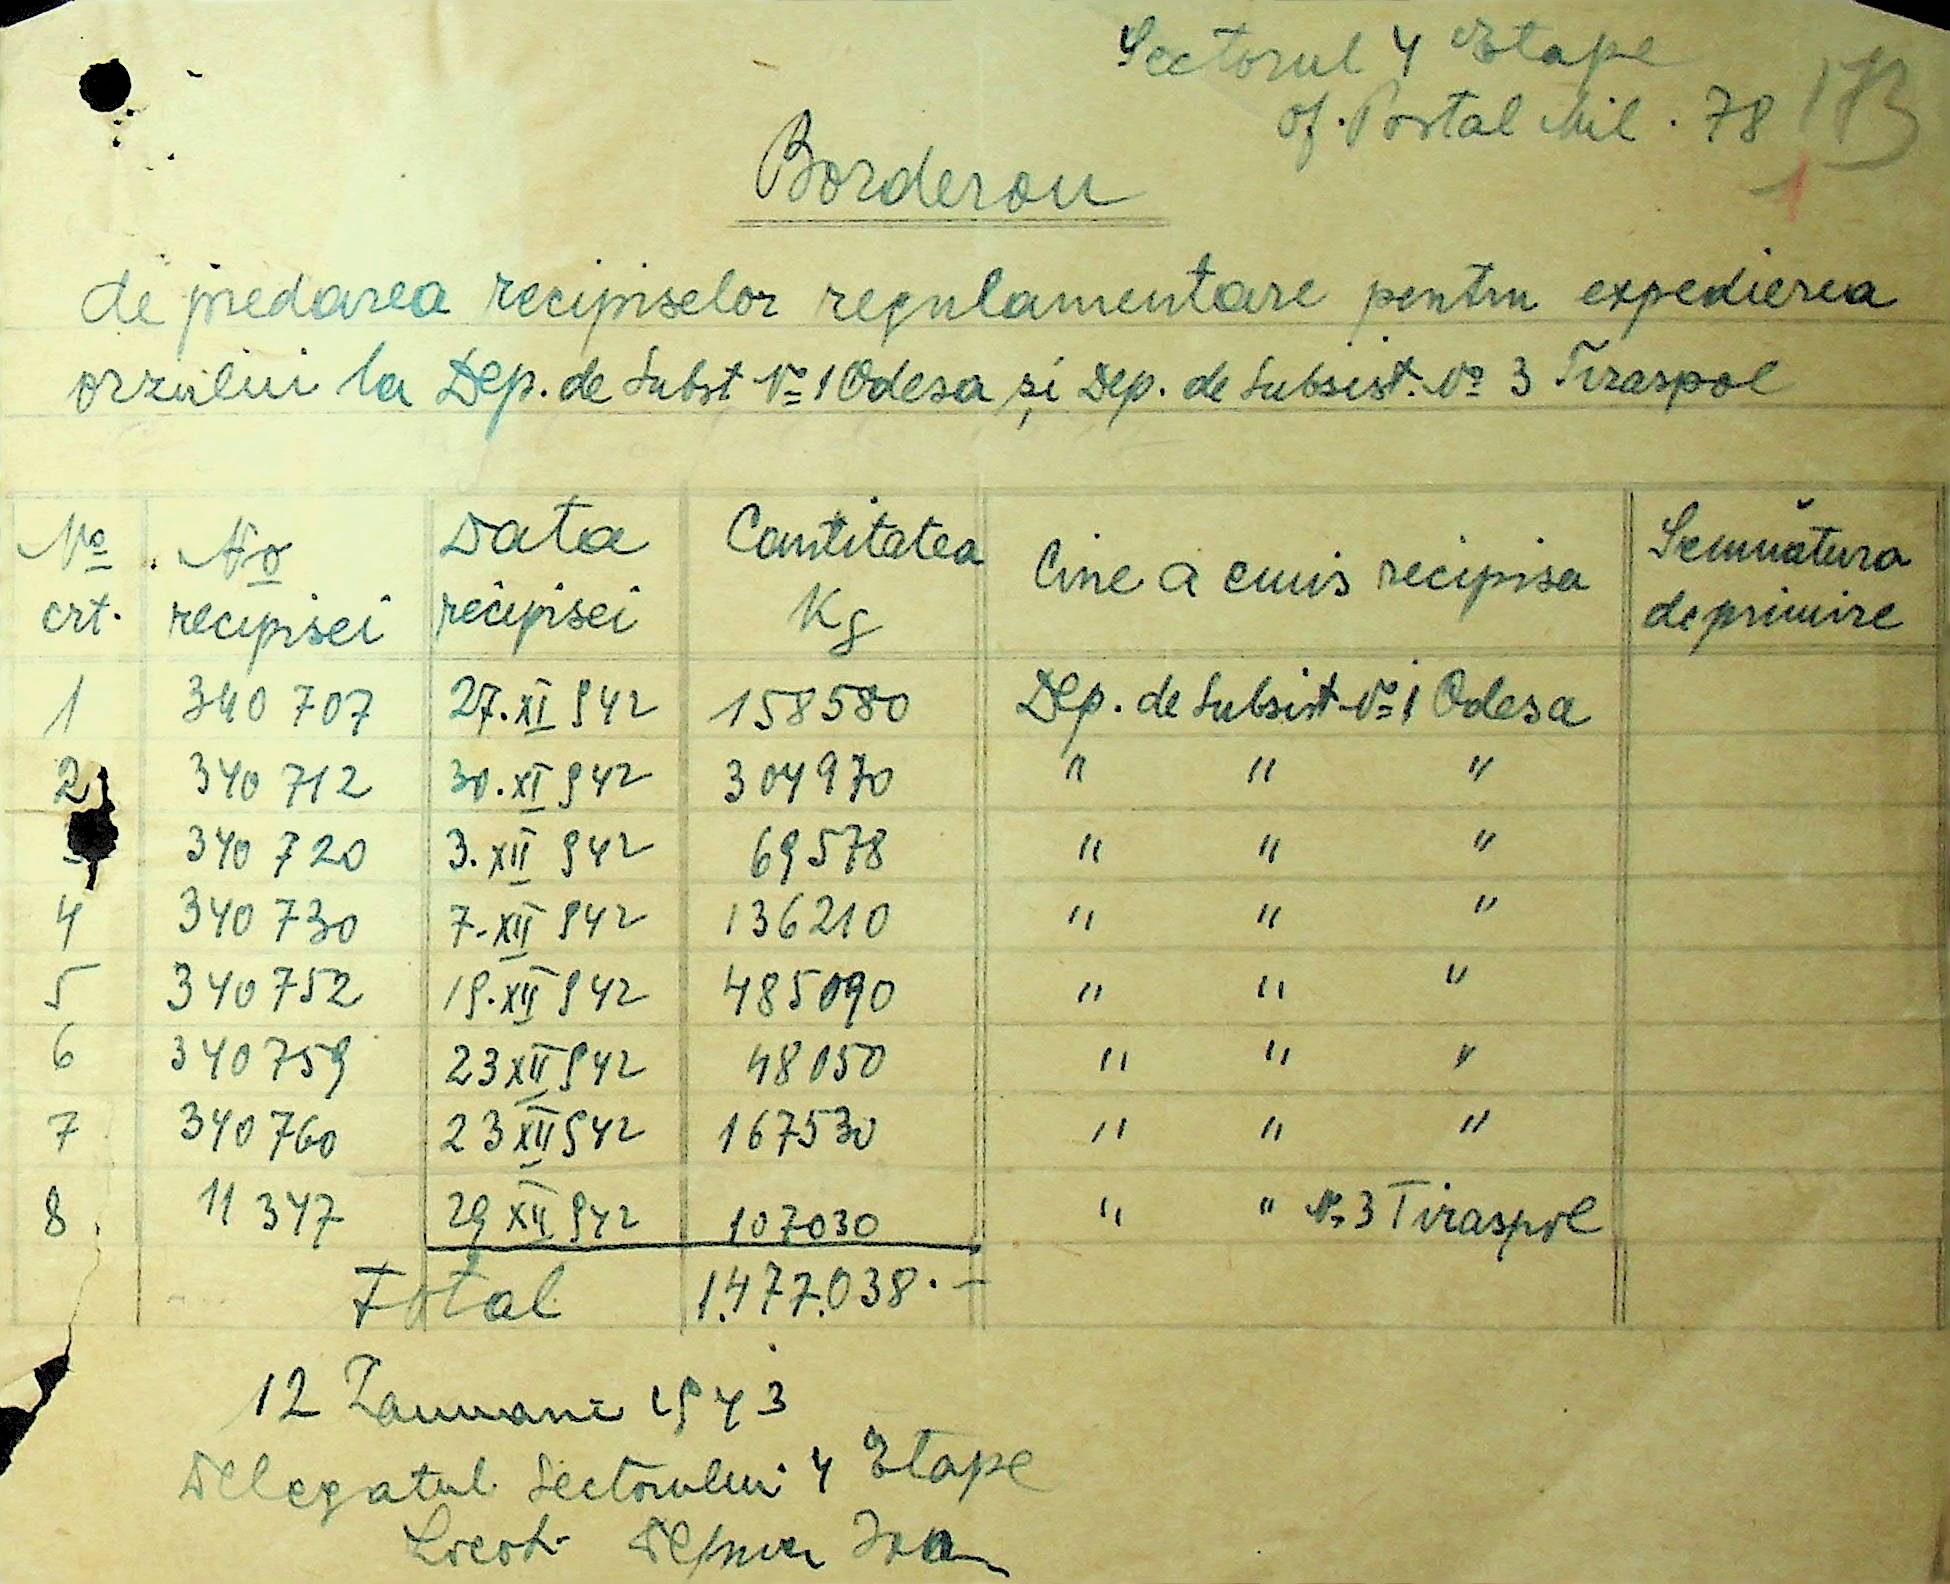 Sectorul 4 Etape
of. Postal Mil. 78
1
Borderou
de predarea recipiselor regulamentare pentru expedierea
orzului la Dep. de Subst No 1 Odesa și Dep. de Subsist. No 3 Tiraspol
No crt. No recipisei Data recipisei Cantitatea Kg Cine a emis recipisa Semnătura de primire
1 340 707 27.XI 942 158580 Dep. de Subsist No 1 Odesa
2 340 712 30.XI 942 304970 " " "
340 720 3.XII 942 69578 " " "
4 340 730 7.XII 942 136210 " " "
5 340 752 19.XII 942 485090 " " "
6 340 759 23 XII 942 48050 " " "
7 340 760 23 XII 942 167530 " " "
8 11 347 29 XII 942 107030 " " No 3 Tiraspol
Total 1.477.038.-
12 Ianuarie 1943
Delegatul Sectorului 4 Etape
Locot. Ioan